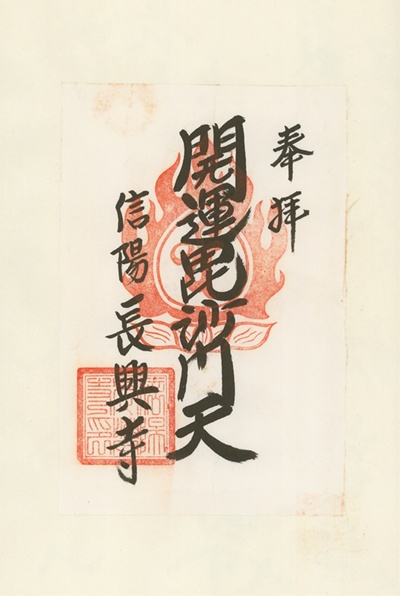 奉拝
開運毘沙門天
信陽長興寺